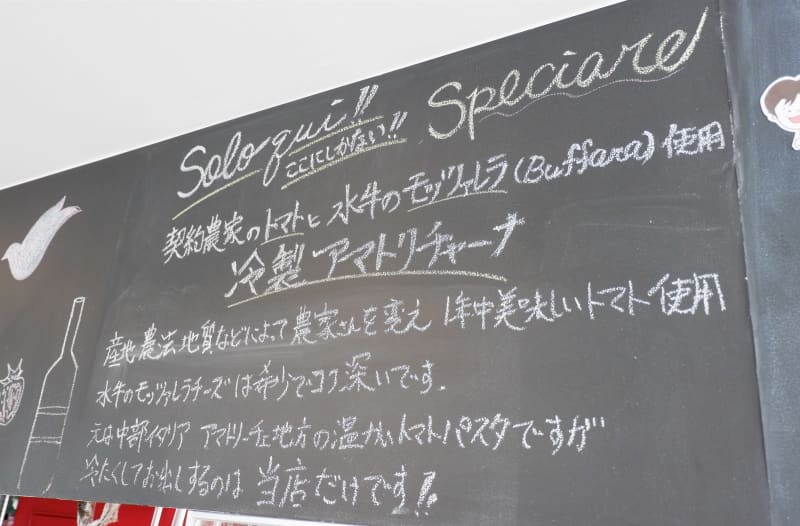 Solo qui!! Speciare
ここにしかない!!
契約農家のトマトと水牛のモッツァレラ(Buffara)使用
冷製アマトリチャーナ
産地農法地質などによって農家さんを変え1年中美味しいトマト使用
水牛のモッツァレラチーズは希少でコク深いです.
元は中部イタリア アマトリーチェ地方の温かいトマトパスタですが
冷たくしてお出しするのは当店だけです!!